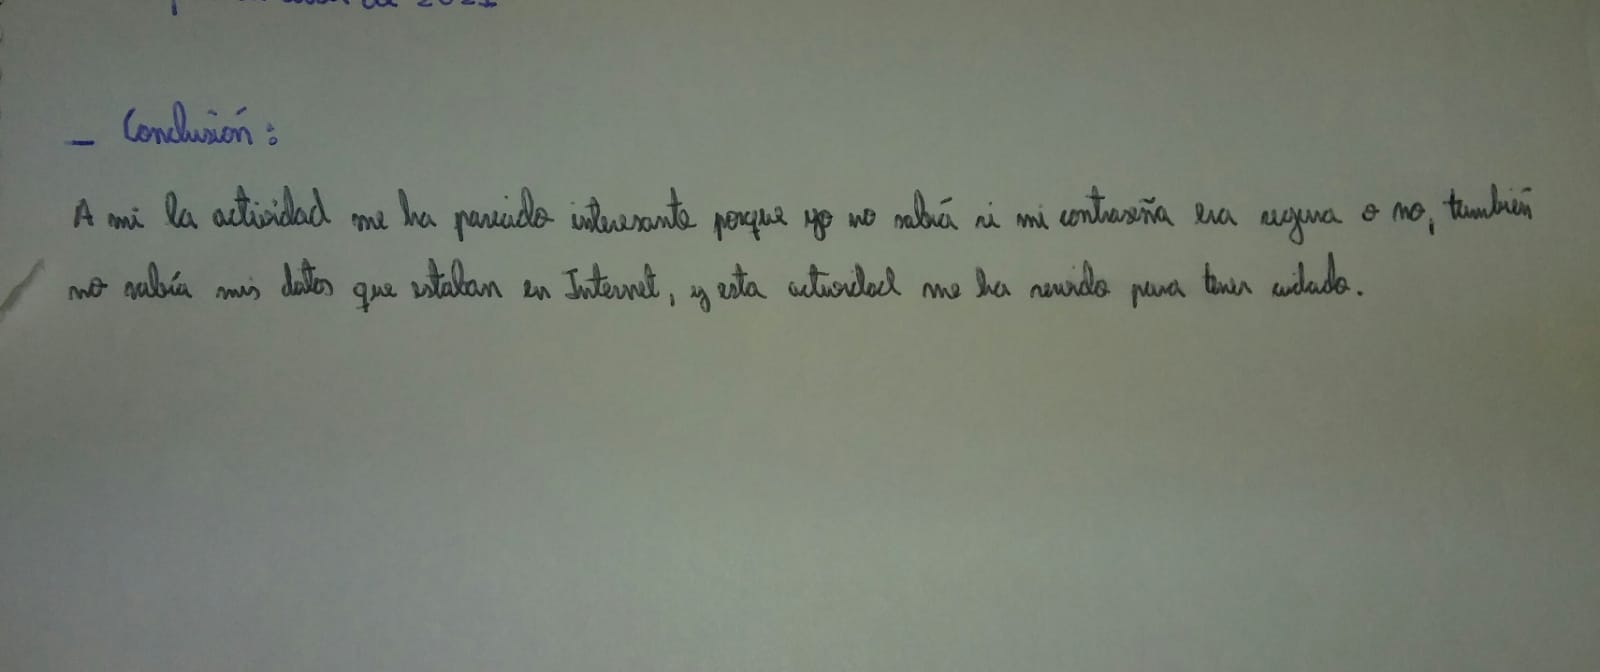 de 2021
– Conclusión:
A mi la actividad me ha parecido interesante porque yo no sabiá si mi contraseña era segura o no, también
no sabía mis datos que estaban en Internet, y esta actividad me ha servido para tener cuidado.